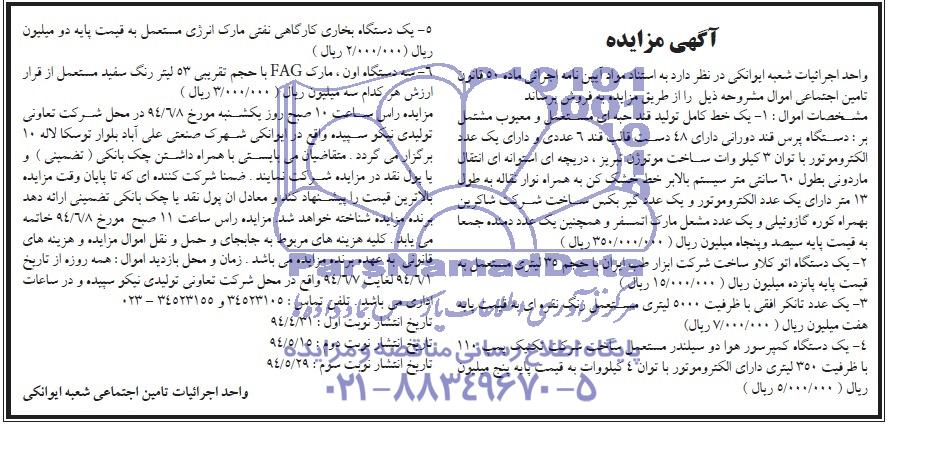 آگهی مزایده
واحد اجرائیات شعبه ایوانکی در نظر دارد به استناد مواد آیین نامه اجرائی ماده ۵۰ قانون
تامین اجتماعی اموال مشروحه ذیل را از طریق مزایده به فروش برساند
مشخصات اموال : ۱- یک خط کامل تولید قند حبه ای مستعمل و معیوب مشتمل
بر : دستگاه پرس قند دورانی دارای ۴۸ دست قالب قند ۶ عددی و دارای یک عدد
الکتروموتور با توان ۳ کیلو وات ساخت موتوژن تبریز ، دریچه ای استوانه ای انتقال
ماردونی بطول ۶۰ سانتی متر سیستم بالابر خط خشک کن به همراه نوار نقاله به طول
۱۳ متر دارای یک عدد الکتروموتور و یک عدد گیر بکس ساخت شرکت شاکرین
بهمراه کوره گازوئیلی و یک عدد مشعل مارک اتمسفر و همچنین یک عدد دمنده جمعا
به قیمت پایه سیصد وپنجاه میلیون ریال ( ۳۵۰/۰۰۰/۰۰۰ ریال )
۲- یک دستگاه اتو کلاو ساخت شرکت ابزار طب ایران با حجم ۳۵ لیتری مستعمل به
قیمت پایه پانزده میلیون ریال ( ۱۵/۰۰۰/۰۰۰ ریال )
۳- یک عدد تانکر افقی با ظرفیت ۵۰۰۰ لیتری مستعمل رنگ نقره ای به قیمت پایه
هفت میلیون ریال ( ۷/۰۰۰/۰۰۰ ریال)
۴- یک دستگاه کمپرسور هوا دو سیلندر مستعمل ساخت شرکت تکنیک پمپ ۱۱۰
با ظرفیت ۳۵۰ لیتری دارای الکتروموتور با توان ۴ کیلووات به قیمت پایه پنج میلیون
ریال ( ۵/۰۰۰/۰۰۰ ریال )
۵- یک دستگاه بخاری کارگاهی نفتی مارک انرژی مستعمل به قیمت پایه دو میلیون
ریال (۲/۰۰۰/۰۰۰ ریال )
۶- سه دستگاه اون ، مارک FAG با حجم تقریبی ۵۳ لیتر رنگ سفید مستعمل از قرار
ارزش هر کدام سه میلیون ریال ( ۳/۰۰۰/۰۰۰ ریال )
مزایده راس ساعت ۱۰ صبح روز یکشنبه مورخ ۹۴/۶/۸ در محل شرکت تعاونی
تولیدی نیکو سپیده واقع در ایوانکی شهرک صنعتی علی آباد بلوار توسکا لاله ۱۰
برگزار می گردد . متقاضیان می بایستی با همراه داشتن چک بانکی ( تضمینی ) و
یا پول نقد در مزایده شرکت نمایند . ضمنا شرکت کننده ای که تا پایان وقت مزایده
بالاترین قیمت را پیشنهاد کند و معادل ان پول نقد یا چک بانکی تضمینی ارائه دهد
برنده مزایده شناخته خواهد شد. مزایده راس ساعت ۱۱ صبح مورخ ۹۴/۶/۸ خاتمه
می یابد . کلیه هزینه های مربوط به جابجای و حمل و نقل اموال مزایده و هزینه های
قانونی به عهده برنده مزایده می باشد . زمان و محل بازدید اموال : همه روزه از تاریخ
۹۴/۶/۱ لغایت ۹۴/۶/۷ واقع در محل شرکت تعاونی تولیدی نیکو سپیده و در ساعات
اداری می باشد . تلفن تماس : ۳۴۵۲۳۱۰۵ و ۳۴۵۲۳۱۵۵ - ۰۲۳
تاریخ انتشار نوبت اول : ۹۴/۴/۳۱
تاریخ انتشار نوبت دوم : ۹۴/۵/۱۵
تاریخ انتشار نوبت سوم : ۹۴/۵/۲۹
واحد اجرائیات تامین اجتماعی شعبه ایوانکی
ParsNamadData
پایگاه اطلاع رسانی مناقصه و مزایده
۰۲۱-۸۸۳۴۹۶۷۰-۵